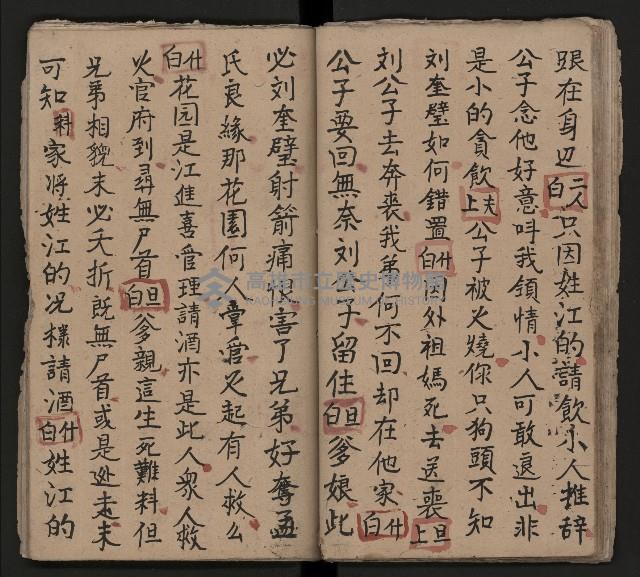 跟在身边二人白只因姓江的請飲小人推辞
公子念他好意叫我領情小人可敢退出非
是小的貪飲夫上公子被火燒你只狗頭不知
刘奎壁如何錯置什白因外祖媽死去送喪旦上
刘公子去奔喪我弟何不回却在他家什白
公子要回無奈刘公子留住旦白爹娘此
必刘奎壁射箭痛恨害了兄弟好奪孟
氏良緣那花園何人掌管火起有人救么
什白花园是江進喜管理請酒亦是此人衆人救
火官府到尋無尸首旦白爹親這生死難料但
兄弟相貌未必夭折既無尸首或是逃走未
可知外家将姓江的况樣請酒什白姓江的
高雄市立歷史博物館
KAOHSIUNG MUSEUM OF HISTORY